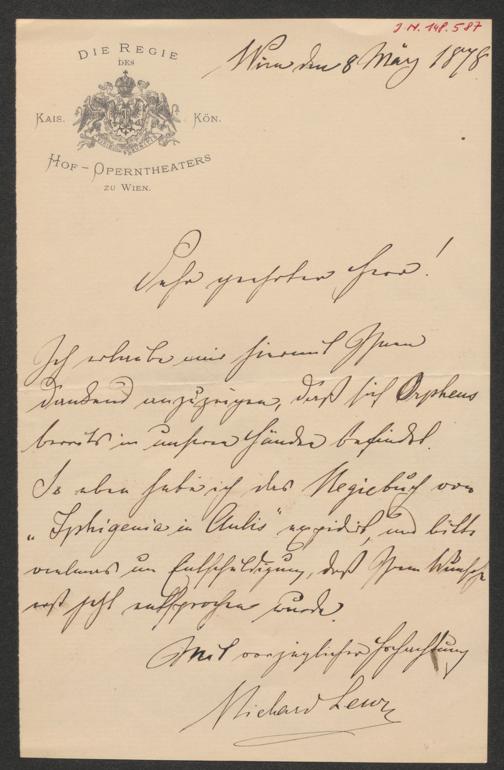 J. N. 148.587
DIE REGIE
DES
KAIS. KÖN.
HOF-OPERNTHEATERS
ZU WIEN.
Wien den 8 März 1878
Sehr geehrter Herr!
Ich erlaube mir hiermit Ihnen
dankend anzuzeigen, daß sich Orpheus
bereits in unseren Händen befindet.
So eben habe ich das Regiebuch von
"Iphigenia in Aulis" expedirt, und bitte
vielmals um Entschuldigung, daß Ihrem Wunsche
erst jetzt entsprochen wurde.
Mit vorzüglicher Hochachtung
Richard Lewy